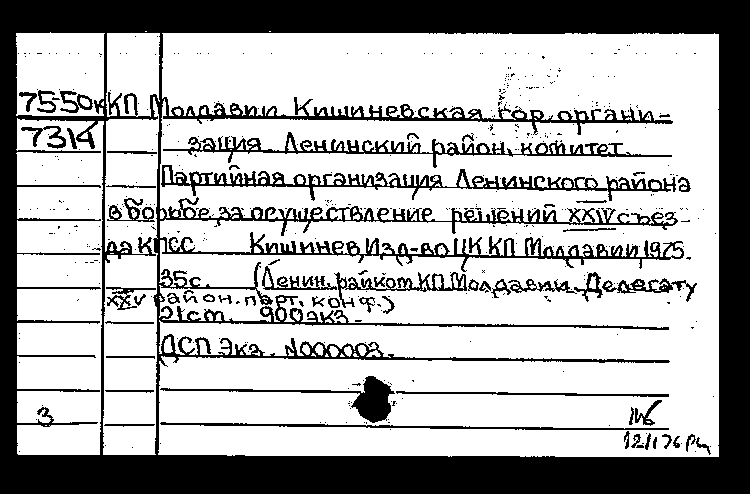 75-50к КП Молдавии. Кишиневская гор. органи-
7314 зация. Ленинский район. комитет.
Партийная организация Ленинского района
в борьбе за осуществление решений XXIV съез-
да КПСС. Кишинев, Изд-во ЦК КП Молдавии, 1975.
35с. (Ленин. райком КП Молдавии. Делегату
XXV район. парт. конф.)
21см. 900экз.
ДСП Экз. N000003.
3
12/I 76